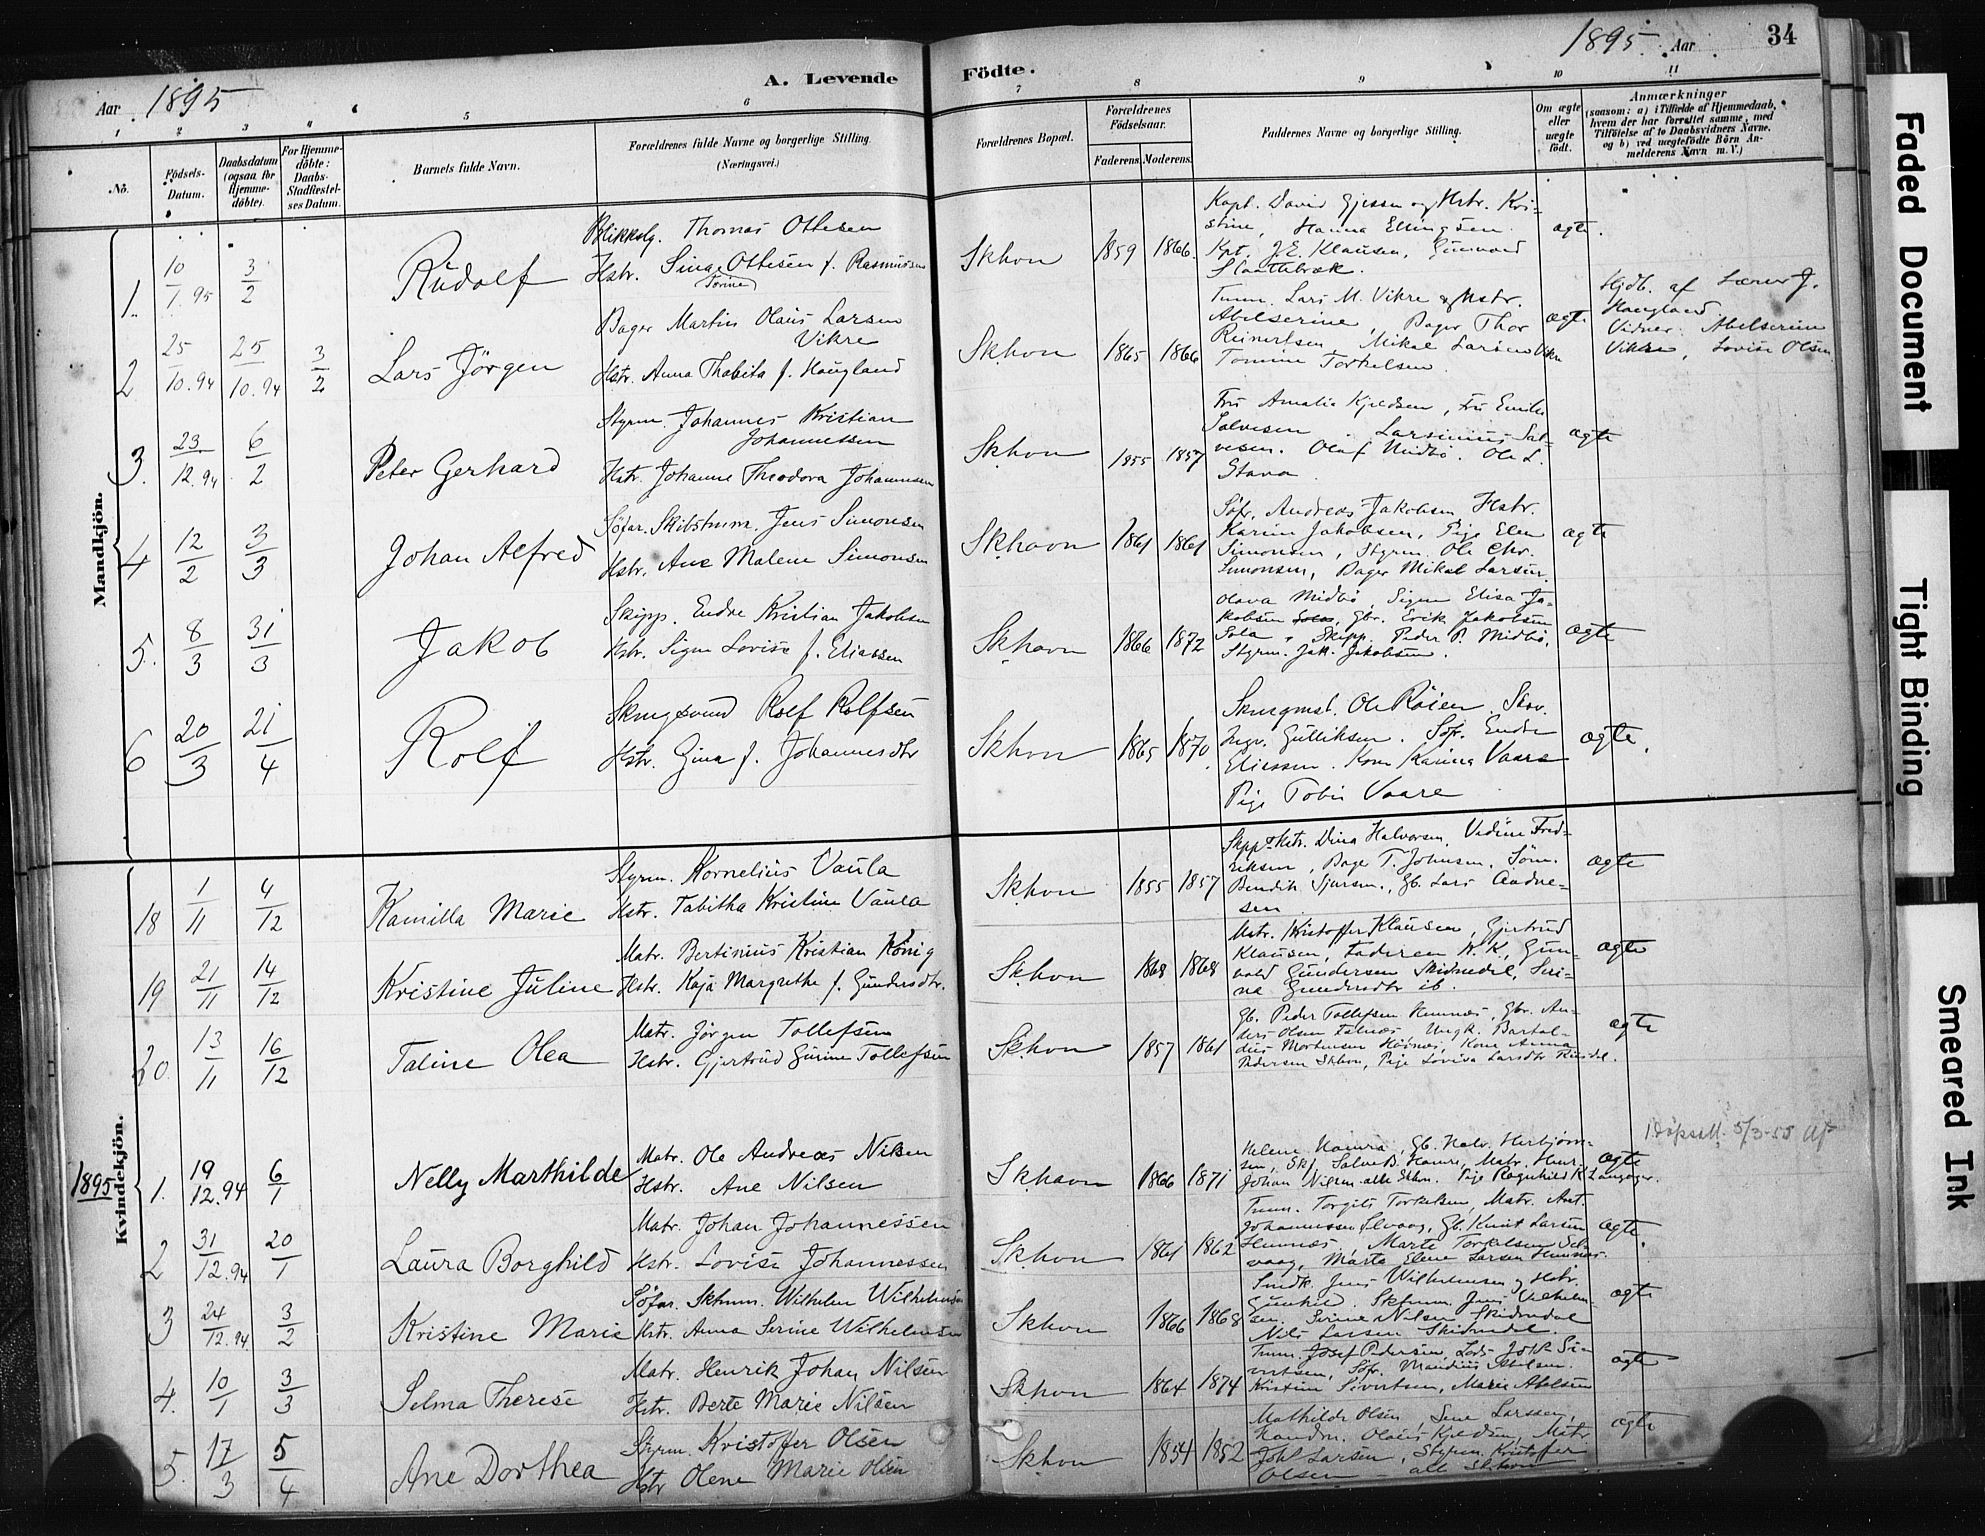 Aar 1895
A. Levende Födte.
1895 Aar 34
1 2 3 4 5 6 7 8 9 10 11
Nô.
Födsels-Datum.
Daabsdatum (ogsaa for Hjemmedöbte).
For Hjemmedöbte: Daabs-Stadfæstelses Datum.
Barnets fulde Navn.
Forældrenes fulde Navne og borgerlige Stilling (Næringsvei.)
Forældrenes Bopæl.
Forældrenes Födselsaar.
Faderens. Moderens.
Faddernes Navne og borgerlige Stilling.
Om ægte eller uægte födt.
Anmærkninger
(saasom: a) i Tilfælde af Hjemmedaab,
hvem der har forrettet samme, med
Tilföielse af to Daabsvidners Navne,
og b) ved uægtefödte Börn Anmelderens Navn m. V.)
Mandkjön.
1. 10/1.95 3/2 Rudolf
Blikkslg. Thomas Ottesen
Hstr. Sina Ottesen f. Rasmussen
(Torine)
Skhvn 1859 1866.
Kapt. David Gjessen og Hstr. Kri-
stine, Hanna Ellingsen
Kpt. J.E. Klausen, Gunvard
Slaattebræk.
ægte.
2 25/10.94 25/10.94 3/2 Lars Jörgen
Bager Martin Olaus Larsen
Vikre
Hstr. Anna Thabita f. Haugland
Skhvn 1865 1866
Tmm. Lars M. Vikre & Hstr.
Abelserine, Bager Thor
Reinertsen, Mikal Larsen Vikre
Tomine Torkelsen.
ægte
Hjdb. af Lærer J.
Haugland.
Vidner: Abelserine
Vikre, Lovise Olsen
3. 23/12.94 6/2 Peter Gerhard
Styrm. Johannes Kristian
Johannessen
Hstr. Johanne Theodora Johannesen
Skhvn 1855 1857
Fru Amalia Kjeldsen, Fru Emilie
Salvesen. Larsinius Sal-
vesen. Olaf Midbö. Ole L.
Stava
ægte
4 12/2 3/3 Johan Alfred
Söfar. Skibstmm. Jens Simonsen
Hstr. Ane Malene Simonsen
Skhavn 1861 1861
Söfr. Andreas Jakobsen Hstr.
Karine Jakobsen, Pige Elen
Simonsen, Styrm. Ole Chr.
Simonsen, Bager Mikal Larsen.
ægte
5. 8/3 31/3 Jakob
Skipp. Endre Kristian Jakobsen
Hstr. Signe Lovise f. Eliassen
Skhavn 1866 1872
Olava Midbö, Signe Elisa Ja-
kobsen Gbr. Erik Jakobsen
Sola, Skipp. Peder P. Midbö,
Styrm. Jak. Jakobsen.
ægte
6 20/3 21/4 Rolf
Rolf Rolfsen
Hstr. Gina f. Johannesdtr
Skhavn 1865 1870.
Ole Röien.
Gulliksen. Söfr. Endre
Eliassen. Kone Karina Vaare
Pige Tobie Vaare
ægte.
Kvindekjön.
18 1/11 4/12 Kamilla Marie
Styrm. Kornelius Vaula
Hstr. Tabitha Kristine Vaula
Skhvn 1855 1857
Skpp Hstr. Dina Halvorsen, Vidine Fred-
riksen, Bager T. Johnsen, Söm.
Bendik Sjursen, Gb. Lars Andre-
sen
ægte
19 21/11 14/12 Kristine Juline
Matr. Bertinius Kristian König
Hstr. Kaja Margrethe f. Gundersdtr.
Skhvn 1868 1868
Matr. Kristoffer Klausen, Gjertrud
Klausen, Faderen B.K., Gun-
vald Gundersen Skidnedel, Seri-
na Gundersdtr ib.
ægte
20. 13/11 16/12 Taline Olea
Matr. Jörgen Tollefsen
Hstr. Gjertrud Gurine Tollefsen
Skhvn 1857 1861
Gb. Peder Tollefsen Hemnes, Gbr. An-
ders Olsen Falnæs, Ungk. Bartol-
dius Mortensen Höinæs, Kone Anna
Pedersen Skhvn, Pige Loviva Larsdtr
ægte
1895
1. 19/12.94 6/1 Nelly Marthilde
Matr. Ole Andreas Nilsen
Hstr. Ane Nilsen
Skhavn 1866 1871
Helene Hamre, Gb. Halv. Herbjörn-
sen, Skf. Salve B. Hamre, Matr. Henr.
Johan Nilsen alle Skhvn. Pige Ragnhild K. Langager.
ægte
Döpsatt. 5/3-55
2 31/12.94 20/1 Laura Borghild
Matr. Johan Johannessen
Hstr. Lovise Johannessen
Skhvn 1861 1862
Tmm. Torgils Torkelsen, Matr. Ant.
Johannessen Selvaag, Gb. Knut Larsen
Hemnæs, Marte Torkelsen Sel-
vaag, Marta Elene Larsen Hemnæs.
ægte.
3 24/12.94 3/2 Kristine Marie
Söfar. Sktmm. Wilhelm Wilhelmsen
Hstr. Anna Serine Wilhelmsen
Skhvn 1866 1868
Smdk. Jens Wilhelmsen og Hstr.
Gunhild. Sktmm. Jens Vilhelm-
sen. Serine Nilsen Skidendal
Nils Larsen Skidendal.
ægte
4. 10/1 3/3 Selma Therese
Matr. Henrik Johan Nilsen
Hstr. Berte Marie Nilsen
Skhvn 1864 1874
Tmm. Josef Pedersen, Lods Joh. Si-
vertsen, Söfr. Mandius Abelsen.
Kristine Sivertsen, Marie Abelsen
ægte
5. 17/3 5/4 Ane Dorthea
Styrm. Kristoffer Olsen
Hstr Olene Marie Olsen
Skhvn 1854 1852
Mathilde Olsen, Sene Larssen,
Handm. Olaus Kjeldsen, Matr
Joh. Larsen, Styrm. Kristoffer
Olsen - alle Skhavn
ægte
Faded Document
Tight Binding
Smeared Ink